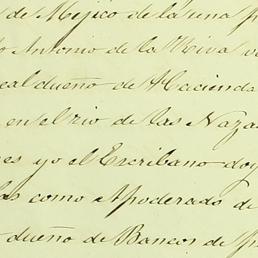 de Mejico de la una p
Antonio de la Riva v
eal dueño de Hacienda
en el rio de las Naza
es yo el Escribano doy
las como Apoderado de
dueño de Bancos de p